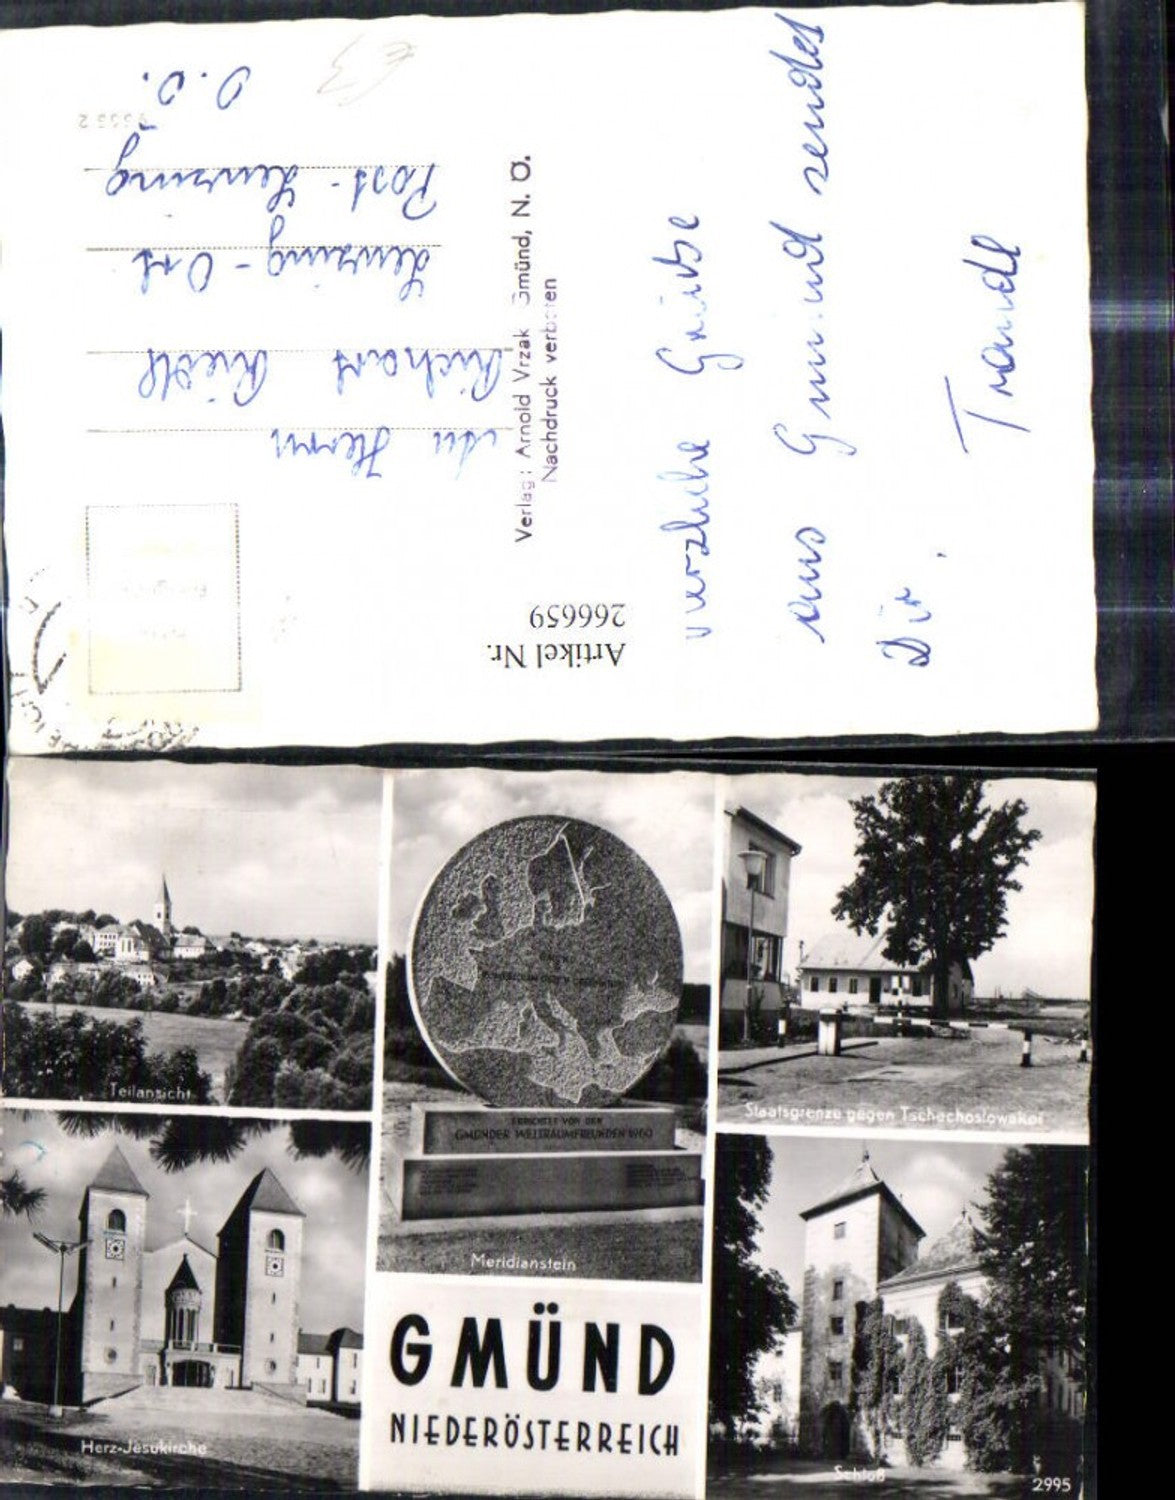 Herzliche Grüsse
aus Gmünd sendet
Dir.
Traudl
Verlag: Arnold Vrzak Gmünd, N. Ö.
Nachdruck verboten
An Herrn
Richart Riedl
Lenzing-Ort
Post-Lenzing
O.Ö.
€3
Artikel Nr.
266659
Teilansicht
ERRICHTET VON DEN
GMÜNDER WELTRAUMFREUNDEN 1960
Meridianstein
Staatsgrenze gegen Tschechoslowakei
Herz-Jesukirche
GMÜND
NIEDERÖSTERREICH
Schloß
2995